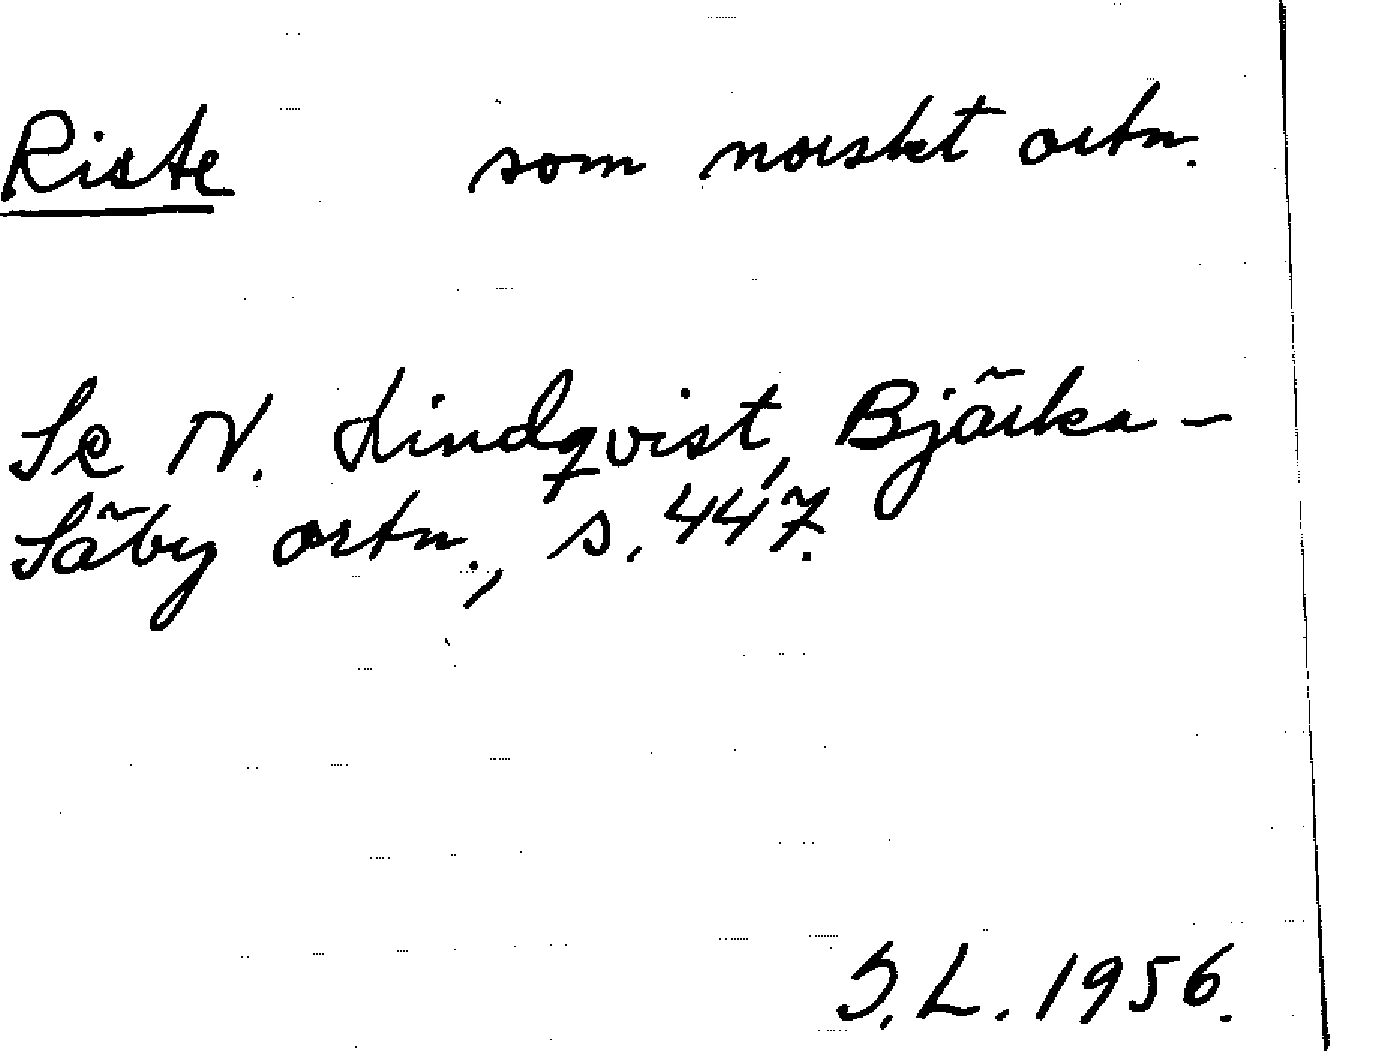 Riste som norskt ortn.
Se N. Lindqvist, Bjärka-
Säby ortn., s. 447.
S.L. 1956.